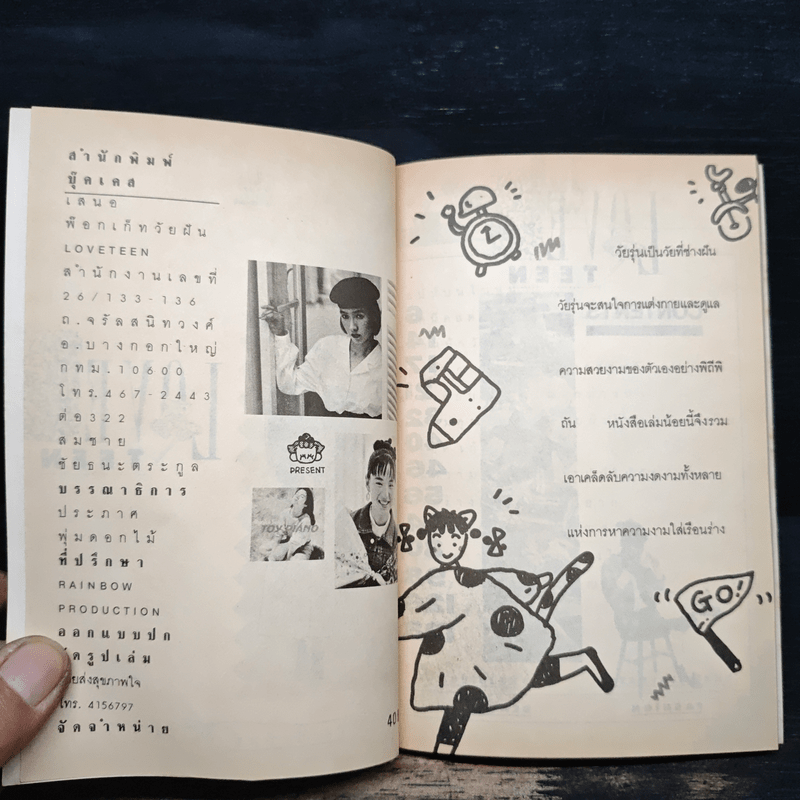 สำนักพิมพ์
บุ๊คเคส
เสนอ
พ๊อกเก็ทวัยฝัน
LOVETEEN
สำนักงานเลขที่
26/133-136
ถ.จรัลสนิทวงศ์
อ.บางกอกใหญ่
กทม.10600
โทร.467-2443
ต่อ322
สมชาย
ชัยธนะตระกูล
บรรณาธิการ
ประภาศ
พุ่มดอกไม้
ที่ปรึกษา
RAINBOW
PRODUCTION
ออกแบบปก
รูปเล่ม
4156797
จัดจำหน่าย
PRESENT
TOY PIANO
วัยรุ่นเป็นวัยที่ช่างฝัน
วัยรุ่นจะสนใจการแต่งกายและดูแล
ความสวยงามของตัวเองอย่างพิถีพิ
ถัน หนังสือเล่มน้อยนี้จึงรวม
เอาเคล็ดลับความงดงามทั้งหลาย
แห่งการหาความงามใส่เรือนร่าง
GO!